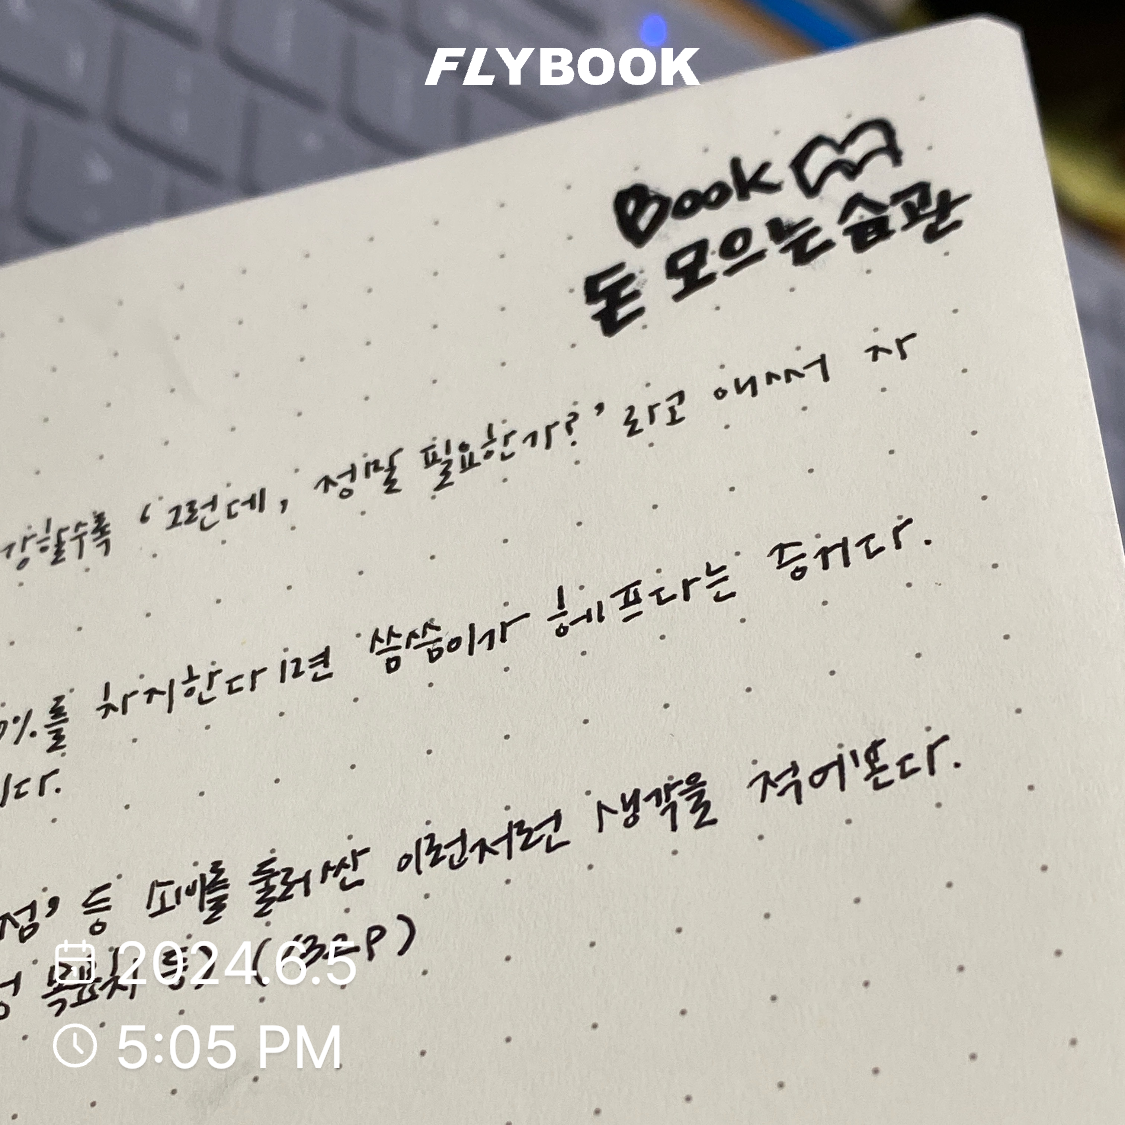 FLYBOOK
Book
돈 모으는 습관
강할수록 '그런데, 정말 필요한가?'라고 애써 자
%를 차지한다면 씀씀이가 헤프다는 증거다.
다.
점' 등 소비를 둘러싼 이런저런 생각을 적어본다.
목표치 등) (132P)
2024.6.5
5:05 PM